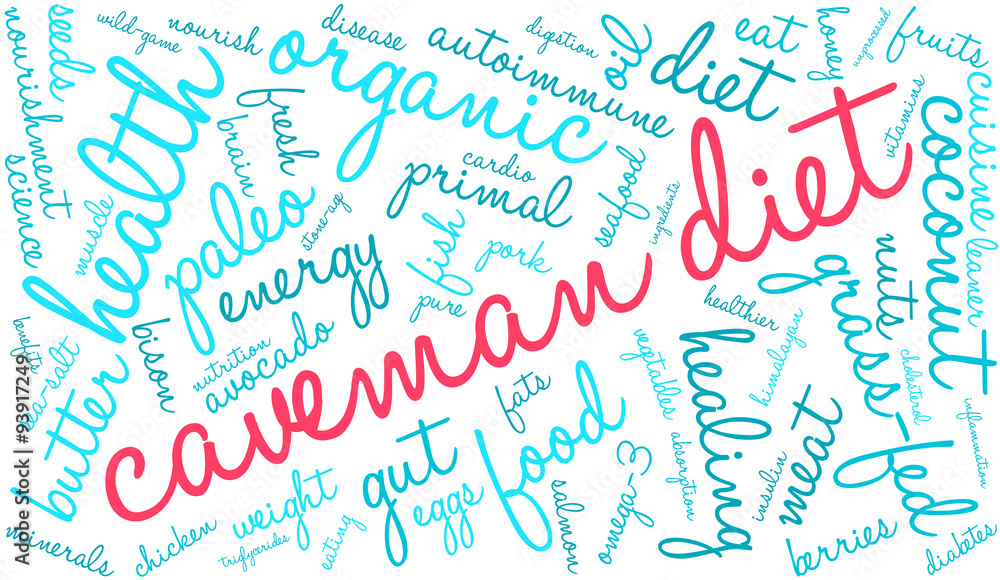 seeds
wild-game
nourish
disease
digestion
oil
eat
honey
unprocessed
fruits
nourishment
health
organic
autoimmune
diet
cuisine
science
muscle
brain
fresh
cardio
primal
seafood
ingredients
vitamins
coconut
paleo
stone-ag
energy
fish
pork
pure
caveman diet
leaner
nuts
grass-fed
benefits
sea-salt
butter
bison
nutrition
avocado
healthier
himalayan
vegetables
healing
cholesterol
inflammation
fats
food
gut
eggs
salmon
omega-3
absorption
insulin
meat
minerals
chicken
weight
triglycerides
eating
berries
diabetes
Adobe Stock | #93917249
Adobe Stock